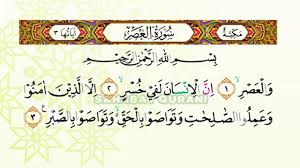 مكية سورة العصر آياتها ٣
بِسْمِ اللهِ الرَّحْمٰنِ الرَّحِيْمِ
وَالْعَصْرِۙ ١ اِنَّ الْاِنْسَانَ لَفِيْ خُسْرٍۙ ٢ اِلَّا الَّذِيْنَ اٰمَنُوْا
وَعَمِلُوا الصّٰلِحٰتِ وَتَوَاصَوْا بِالْحَقِّ ەۙ وَتَوَاصَوْا بِالصَّبْرِ ࣖ ٣